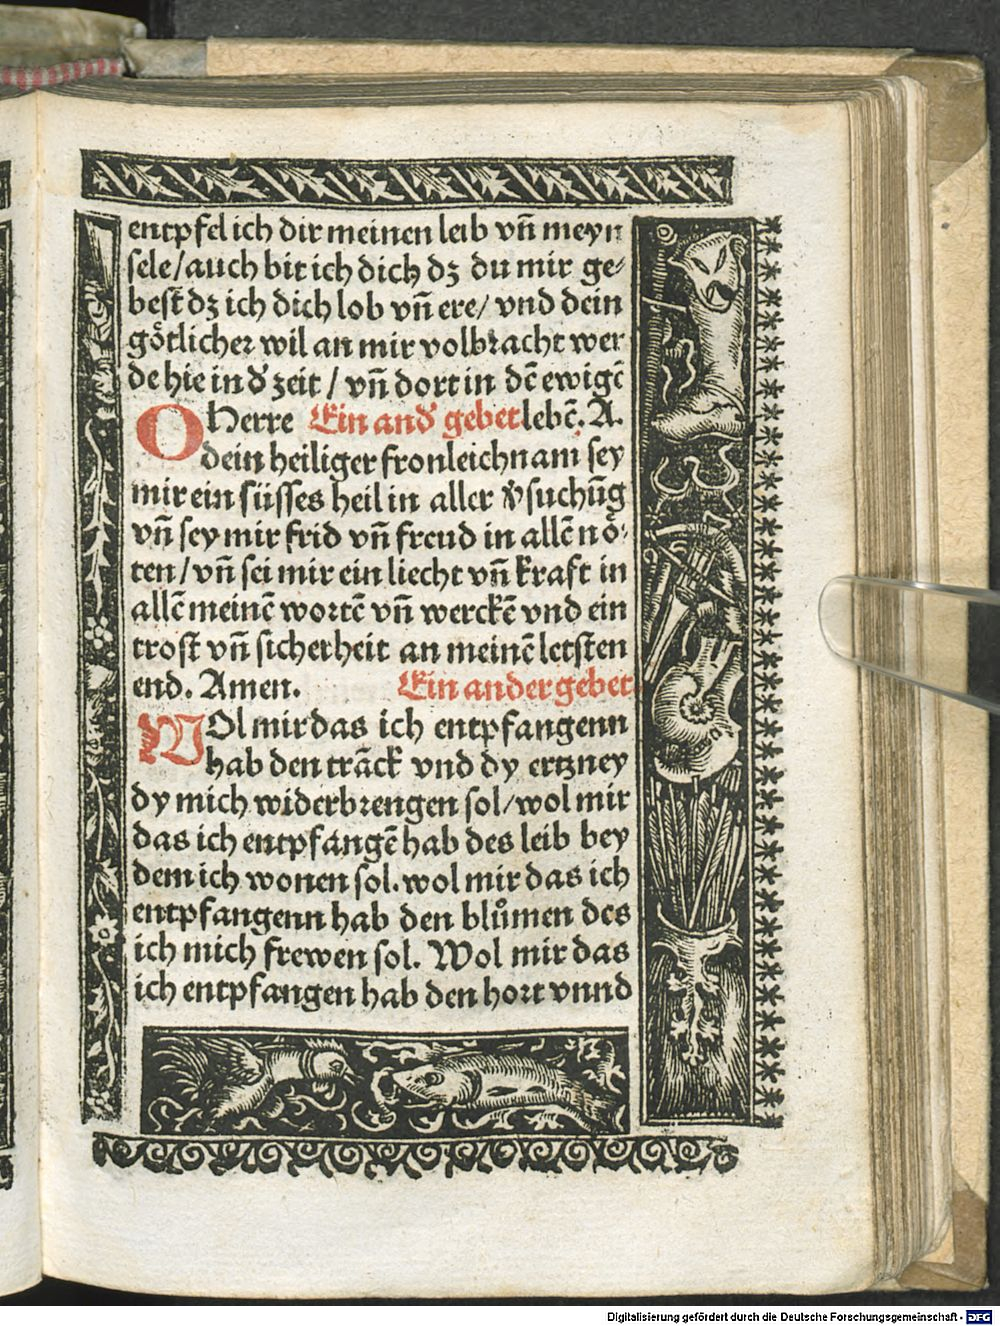 entpfel ich dir meinen leib vn̄ meyn
sele/auch bit ich dich dz du mir ge⸗
best dz ich dich lob vn̄ ere/ vnd dein
gǒtlicher wil an mir volbracht wer
de hie in d̓ zeit / vn̄ dort in dē ewigē
O Herre Ein and̓ gebet lebē. A.
dein heiliger fronleichnam sey
mir ein süsses heil in aller v̓suchūg
vn̄ sey mir frid vn̄ freud in allē nö⸗
ten/vn̄ sei mir ein liecht vn̄ kraft in
allē meinē wortē vn̄ werckē vnd ein
trost vn̄ sicherheit an meinē letsten
end. Amen. Ein ander gebet
WOl mir das ich entpfangenn
hab den trāck vnd dy ertzney
dy mich widerbrengen sol/wol mir
das ich entpfangē hab des leib bey
dem ich wonen sol. wol mir das ich
entpfangenn hab den blůmen des
ich mich frewen sol. Wol mir das
ich entpfangen hab den hort vnnd
Digitalisierung gefördert durch die Deutsche Forschungsgemeinschaft - DFG